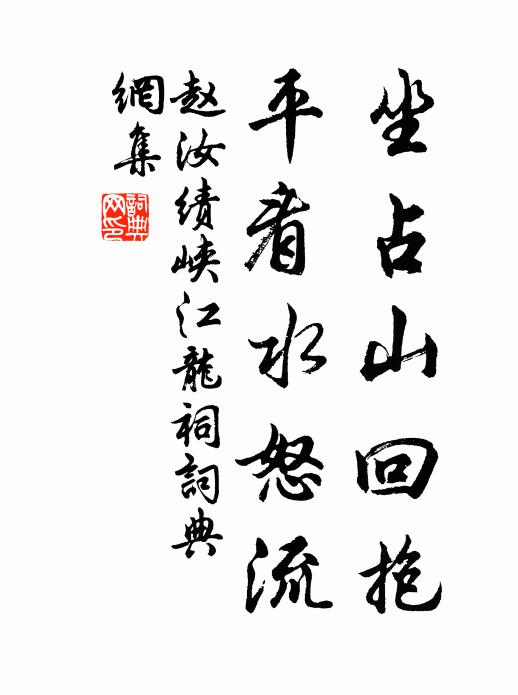 坐占山回抱
平看水怒流
赵汝绩峡江龍祠詞典
網集
詞典
网印